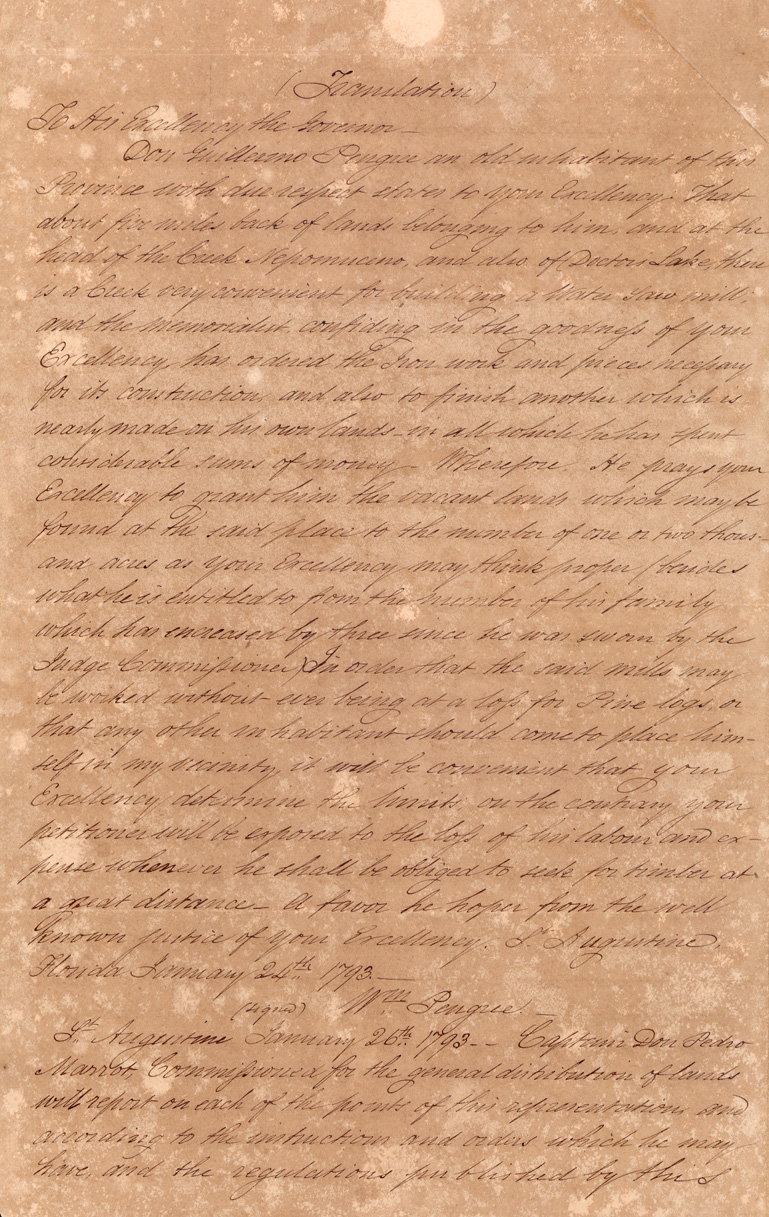 (Translation)
To His Excellency the Governor—
Don Guillermo Pengree an old inhabitant of this
Province with due respect states to your Excellency: That
about five miles back of lands belonging to him, and at the
head of the Creek Nepomuceno, and also of Doctors Lake, there
is a Creek very convenient for building a Water Saw mill;
and the memorialist confiding in the goodness of your
Excellency, has ordered the Iron work and pieces necessary
for its construction, and also to finish another which is
nearly made on his own lands—in all which he has spent
considerable sums of money— Wherefore. He prays your
Excellency to grant him the vacant lands which may be
found at the said place to the number of one or two thous-
and acres as your Excellency may think proper (besides
what he is entitled to from the number of his family
which has encreased by three since he was sworn by the
Judge Commissioner) In order that the said mills may
be worked without ever being at a loss for Pine logs, or
that any other inhabitant should come to place him-
self in my vicinity, it will be convenient that your
Excellency determine the limits; on the contrary your
petitioner will be exposed to the loss of his labour and ex-
pense whenever he shall be obliged to seek for timber at
a great distance— A favor he hopes from the well
known justice of your Excellency. St. Augustine,
Florida January 24th. 1793—
(signed) Wm. Pengree.—
St. Augustine January 26th. 1793.-- Captain Don Pedro
Marrot, Commissioned for the general distribution of lands
will report on each of the points of this representation, and
according to the instructions and orders which he may
have, and the regulations published by this